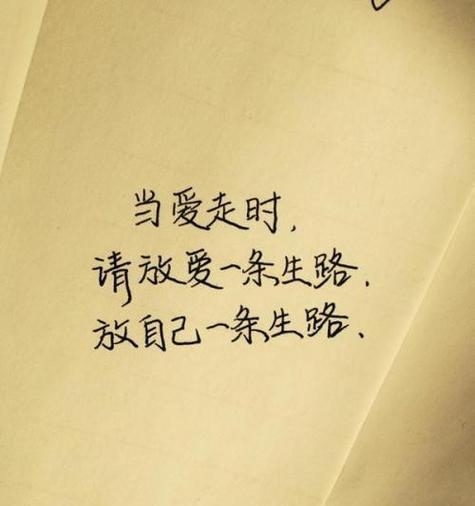 当爱走时,
请放爱一条生路.
放自己一条生路.